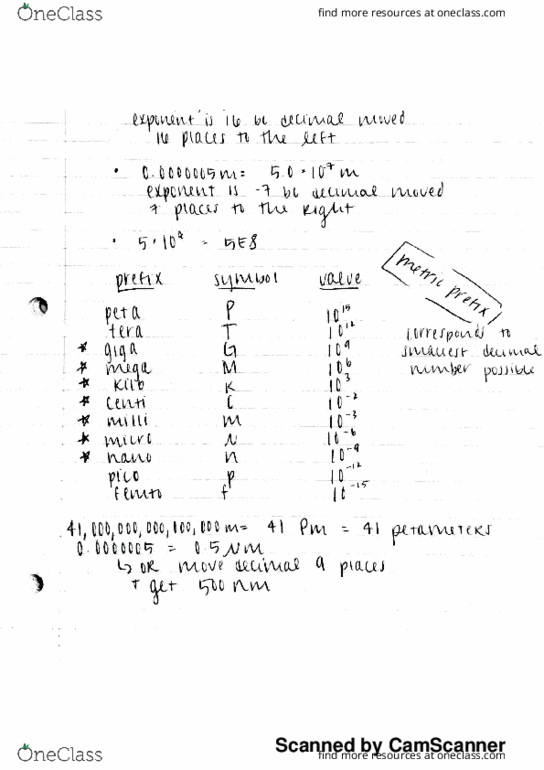 OneClass
find more resources at oneclass.com
exponent is 16 bc decimal moved
16 places to the left
• 0.0000005m = 5.0 · 10⁷ m
exponent is -7 bc decimal moved
7 places to the right
• 5 · 10⁸ = 5E8
prefix symbol value
metric prefix
peta P 10¹⁵
tera T 10¹²
* giga G 10⁹
* mega M 10⁶
* kilo K 10³
* centi c 10⁻²
* milli m 10⁻³
* micro μ 10⁻⁶
* nano n 10⁻⁹
pico p 10⁻¹²
femto f 10⁻¹⁵
corresponds to
smallest decimal
number possible
41,000,000,000,100,000 m = 41 Pm = 41 petameters
0.0000005 = 0.5 μm
↳ or move decimal 9 places
+ get 500 nm
Scanned by CamScanner
OneClass
find more resources at oneclass.com